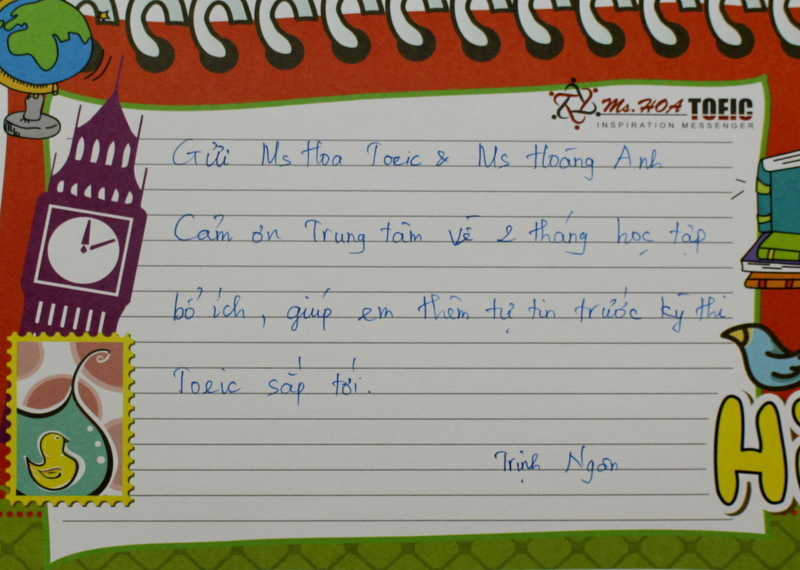 Ms. HOA TOEIC
INSPIRATION MESSENGER
Gửi Ms Hoa Toeic & Ms Hoàng Anh
Cảm ơn Trung tâm về 2 tháng học tập
bổ ích, giúp em thêm tự tin trước kỳ thi
Toeic sắp tới.
Trịnh Ngân
Hi